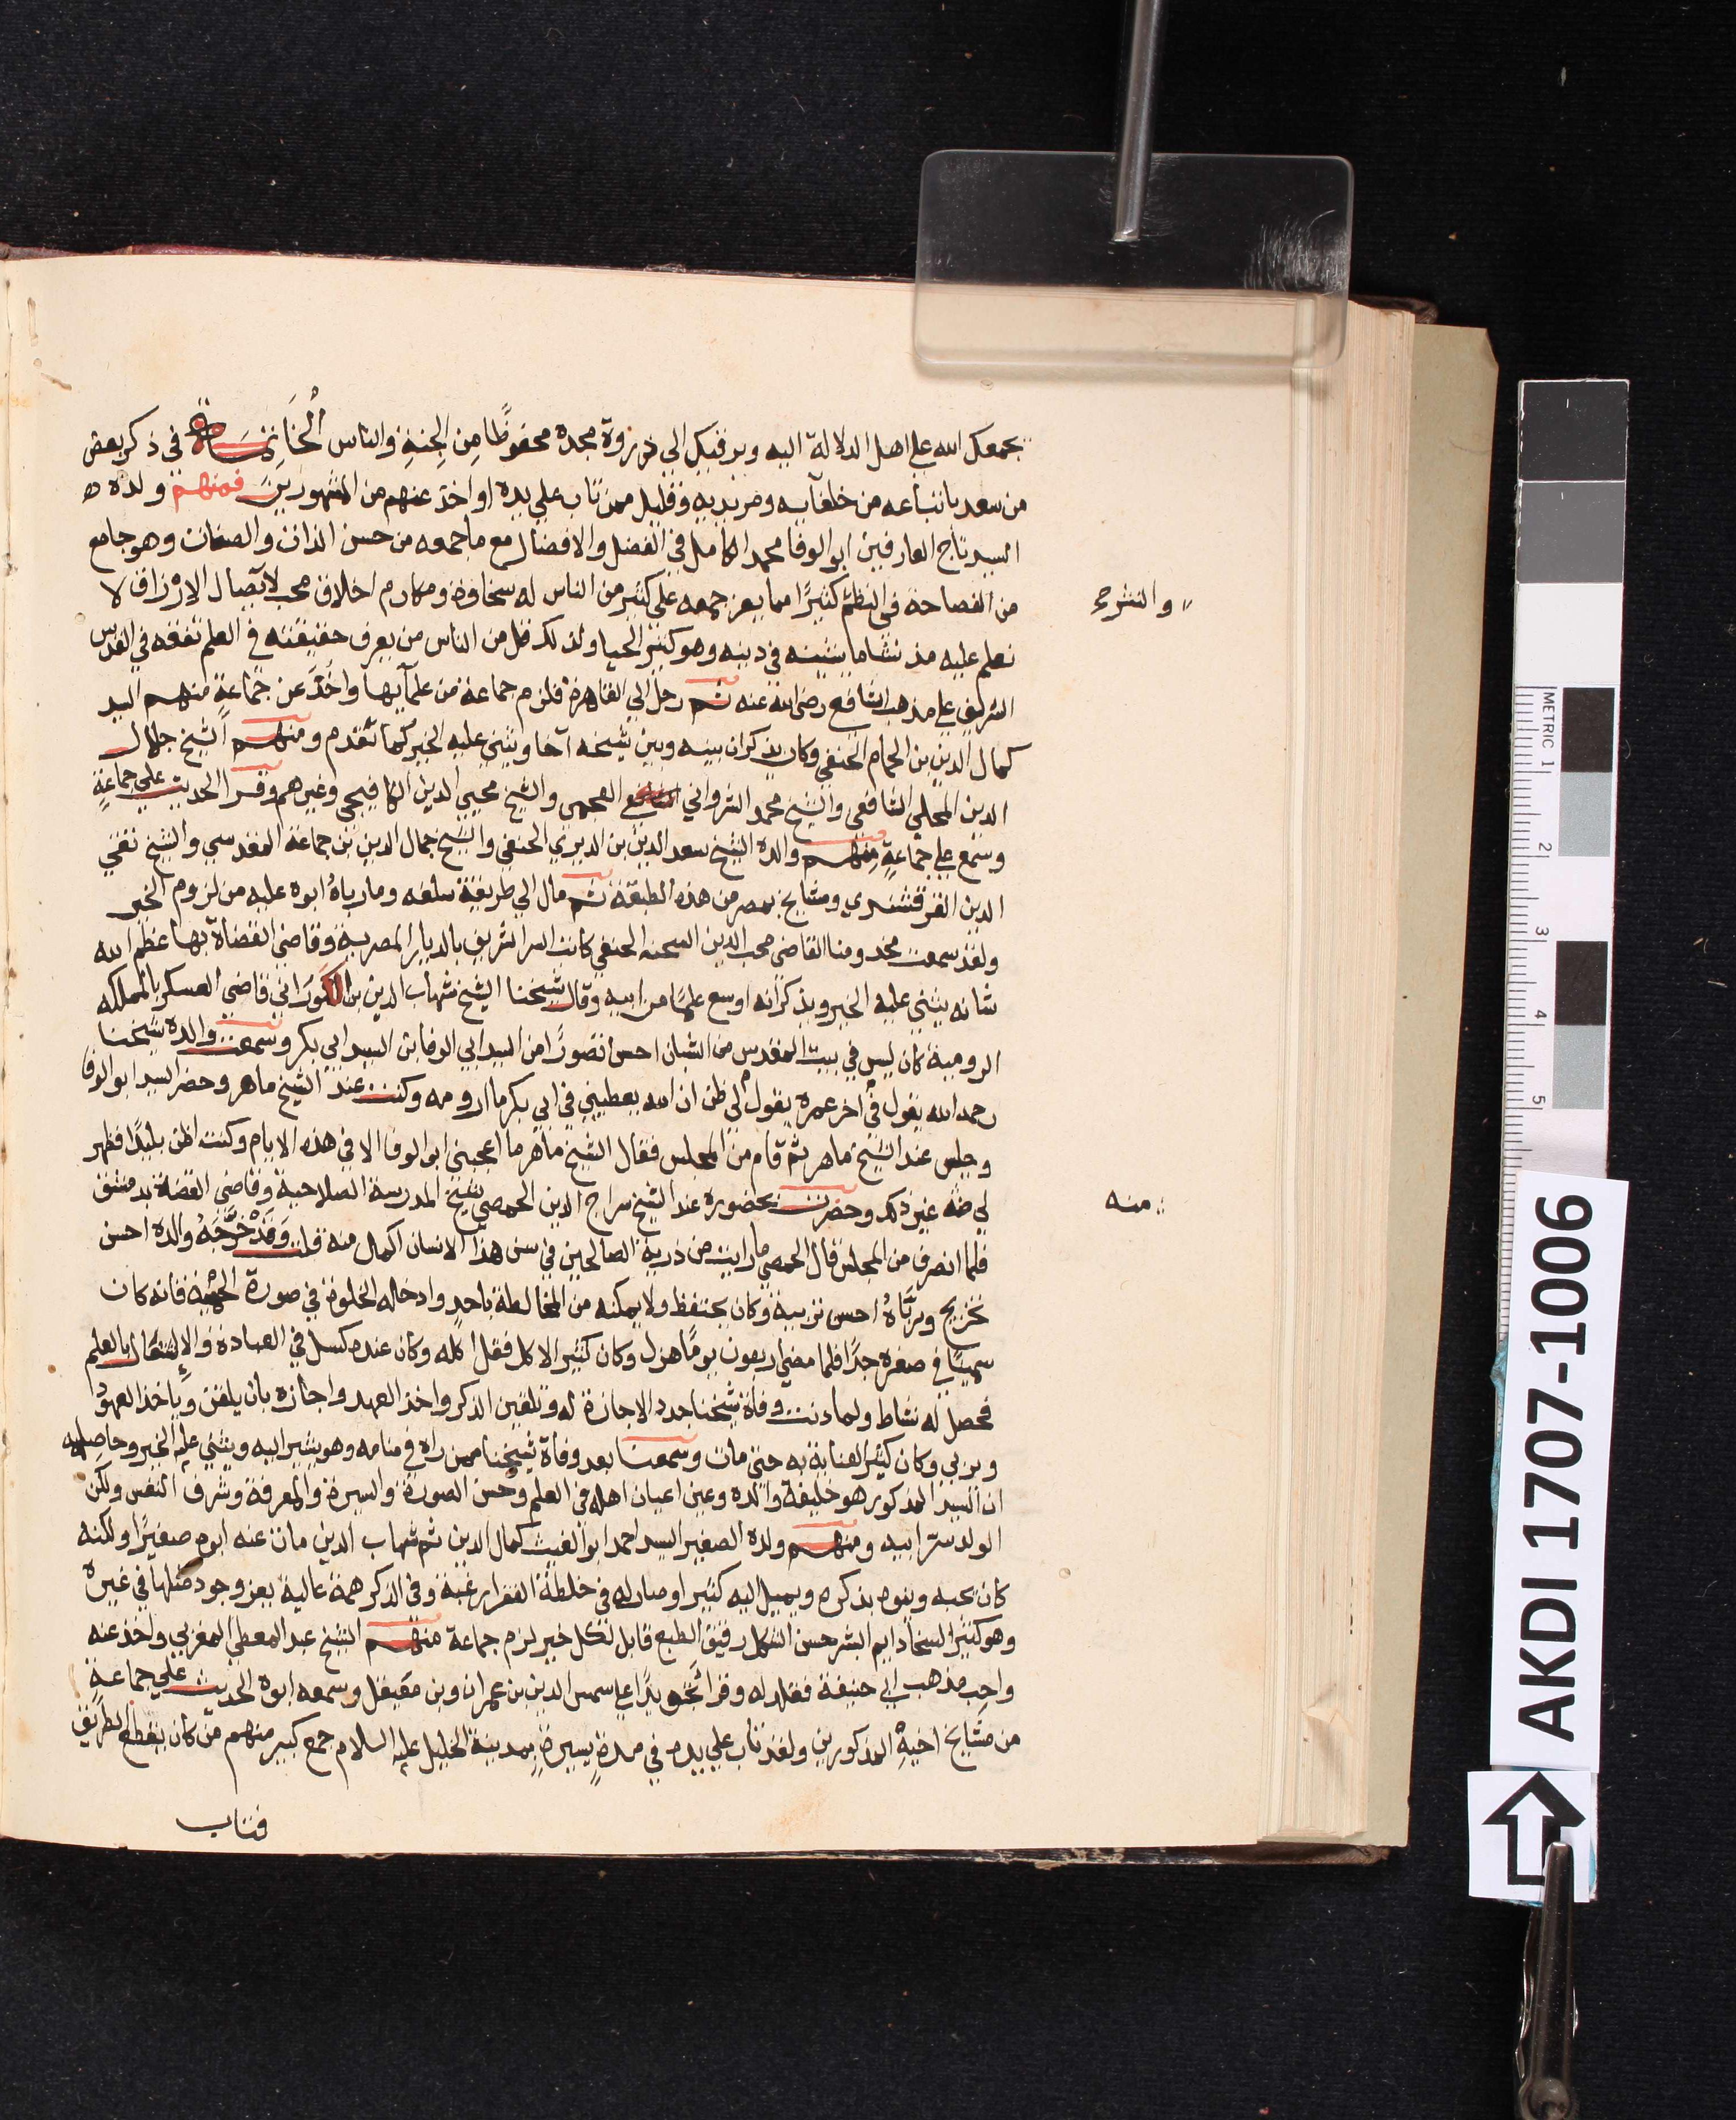 يجمعك الله على اهل الدلالة اليه ويرقيك الى ذروة مجده محفوظًا مِن الجِنةِ والناس الخَاتِمَة في ذكر بعض
من سعد باتباعه من خلفآيه ومريديه وقليل ممن تاب على يده او اخذ عنهم من المشهورَينَ فمنهم ولده
السيد تاج العارفين ابو الوفا محمد الكامل في الفضل والافضال مع ما جمعه من حسن الذات والصفات وهو جامع
من الفصاحة في النظم كثيرًا مما يعز جمعه على كثير من الناس له سخا وافر ومكارم اخلاق محب لايصال الارزاق لا
والنثر صح
نعلم عليه مذ نشا ما يشينه في دينه وهو كثير الحيا ولذلك قل من الناس من يعرف حقيقته في العلم تفقه في القدس
الشريف على مذهب الشافعي رضي الله عنه ثم رحل الى القاهرة فلزم جماعة من علمآيها واخذ عن جماعةٍ منهم السيد
كمال الدين بن الهمام الحنفي وكان يذكر ان بينه وبين شيخه اخا ويثني عليه الخير كما تقدم ومنهم الشيخ جلال
الدين المحلي الشافعي والشيخ محمد الشرواني العجمي والشيخ محيي الدين الكافيجي وغيرهم وقرا الحديث على جماعةٍ
وسمع على جماعةٍ منهم والده الشيخ سعد الدين بن الديري الحنفي والشيخ جمال الدين بن جماعة المقدسي والشيخ تقي
الدين القرقشندي ومشايخ بمصر من هذه الطبقة ثم مال الى طريقة سلفه وما رباهُ ابوه عليه من لزوم الخير
ولقد سمعت مخدومنا القاضي محب الدين الشحنه الحنفي كاتب السر الشريف بالديار المصرية وقاضي القضاة بها عظم الله
شانه يثني عليه الخير ويذكر انه اوسع علمًا من ابيه وقال شيخنا الشيخ شهاب الدين بن الكوراني قاضي العسكر بالمملكه
الروميه كان ليس في بيت المقدس من الشبان احسن تصورًا من السيد ابي الوفا بن السيد ابي بكر وسمعت والده شيخنا
رحمه الله يقول في اخر عمره يقول لي ظن ان الله يعطيني في ابي بكر ما ارومه وكنت عند الشيخ ماهر وحضر السيد ابو الوفا
وجلس عند الشيخ ماهر ثم قام من المجلس فقال الشيخ ماهر ما اعجبني ابو الوفا الا في هذه الايام وكنت اظن بليدًا فظهر
لي منه غير ذلك وحضرت بحضوره عند الشيخ سراج الدين الحمصي شيخ المدرسة الصلاحية وقاضي القضاة بدمشق
منه
فلما انصرف من المجلس قال الحمصي ما رايت من ذرية الصالحين في سن هذا الانسان اكمل منه قلت وَقَدْ خَرَّجَهُ والده احسن
تخريج وربَّاهُ احسن تربية وكان يحتفظ ولا يمكنه من المخالطة باحدٍ وادخاله الخلوة في صورة الحمْيَة فانه كان
سمينًا في صغره جدًا فلما مضى اربعون يومًا هزل وكان كثير الاكل فقل اكله وكان عنده كسل في العبادة والاشتغال بالعلم
فحصل له نشاط ولما دنت وفاة شيخنا جدد الاجازة له وتلقين الذكر واخذ العهد واجازه بان يلقن وياخذ العهود
ويربي وكان كثير العناية به حتى مات وسمعت بعد وفاة شيخنا ممن راه في منامه وهو يشير اليه ويثني عليه الخير وحاصله
ان السيد المذكور هو خليفة والده وعين اعيان اهله في العلم وحسن الصورة والسيرة والمعرفة وشرف النفس ولكن
الولد سر ابيه ومنهم ولده الصغير السيد احمد ابو الغيث كمال الدين ثم شهاب الدين مات عنه ابوه صغيرًا ولكنه
كان يحبه وينوه بذكره ويميل اليه كثيرا وصار له في خلطة الفقرا رغبة وفي الذكر همة عالية يعز وجود مثلها في غيره
وهو كثير السخا دايم البشر حسن الشكل رقيق الطبع قابل لكل خير لزم جماعة منهم الشيخ عبد المعطي المغربي واخذ عنه
واحب مذهب ابي حنيفة فقلد له وقرا تجويدًا على شمس الدين بن عمران وبن معيقل وسمعه ابوه الحديث على جماعةٍ
من مشايخ اخيهِ المذكورين ولقد تاب على يده في مدةٍ يسيرةٍ بمدينة الخليل عليه السلام جمع كبير منهم من كان يقطع الطريق
فتاب
METRIC 1 2 3 4 5
AKDI 1707-1006